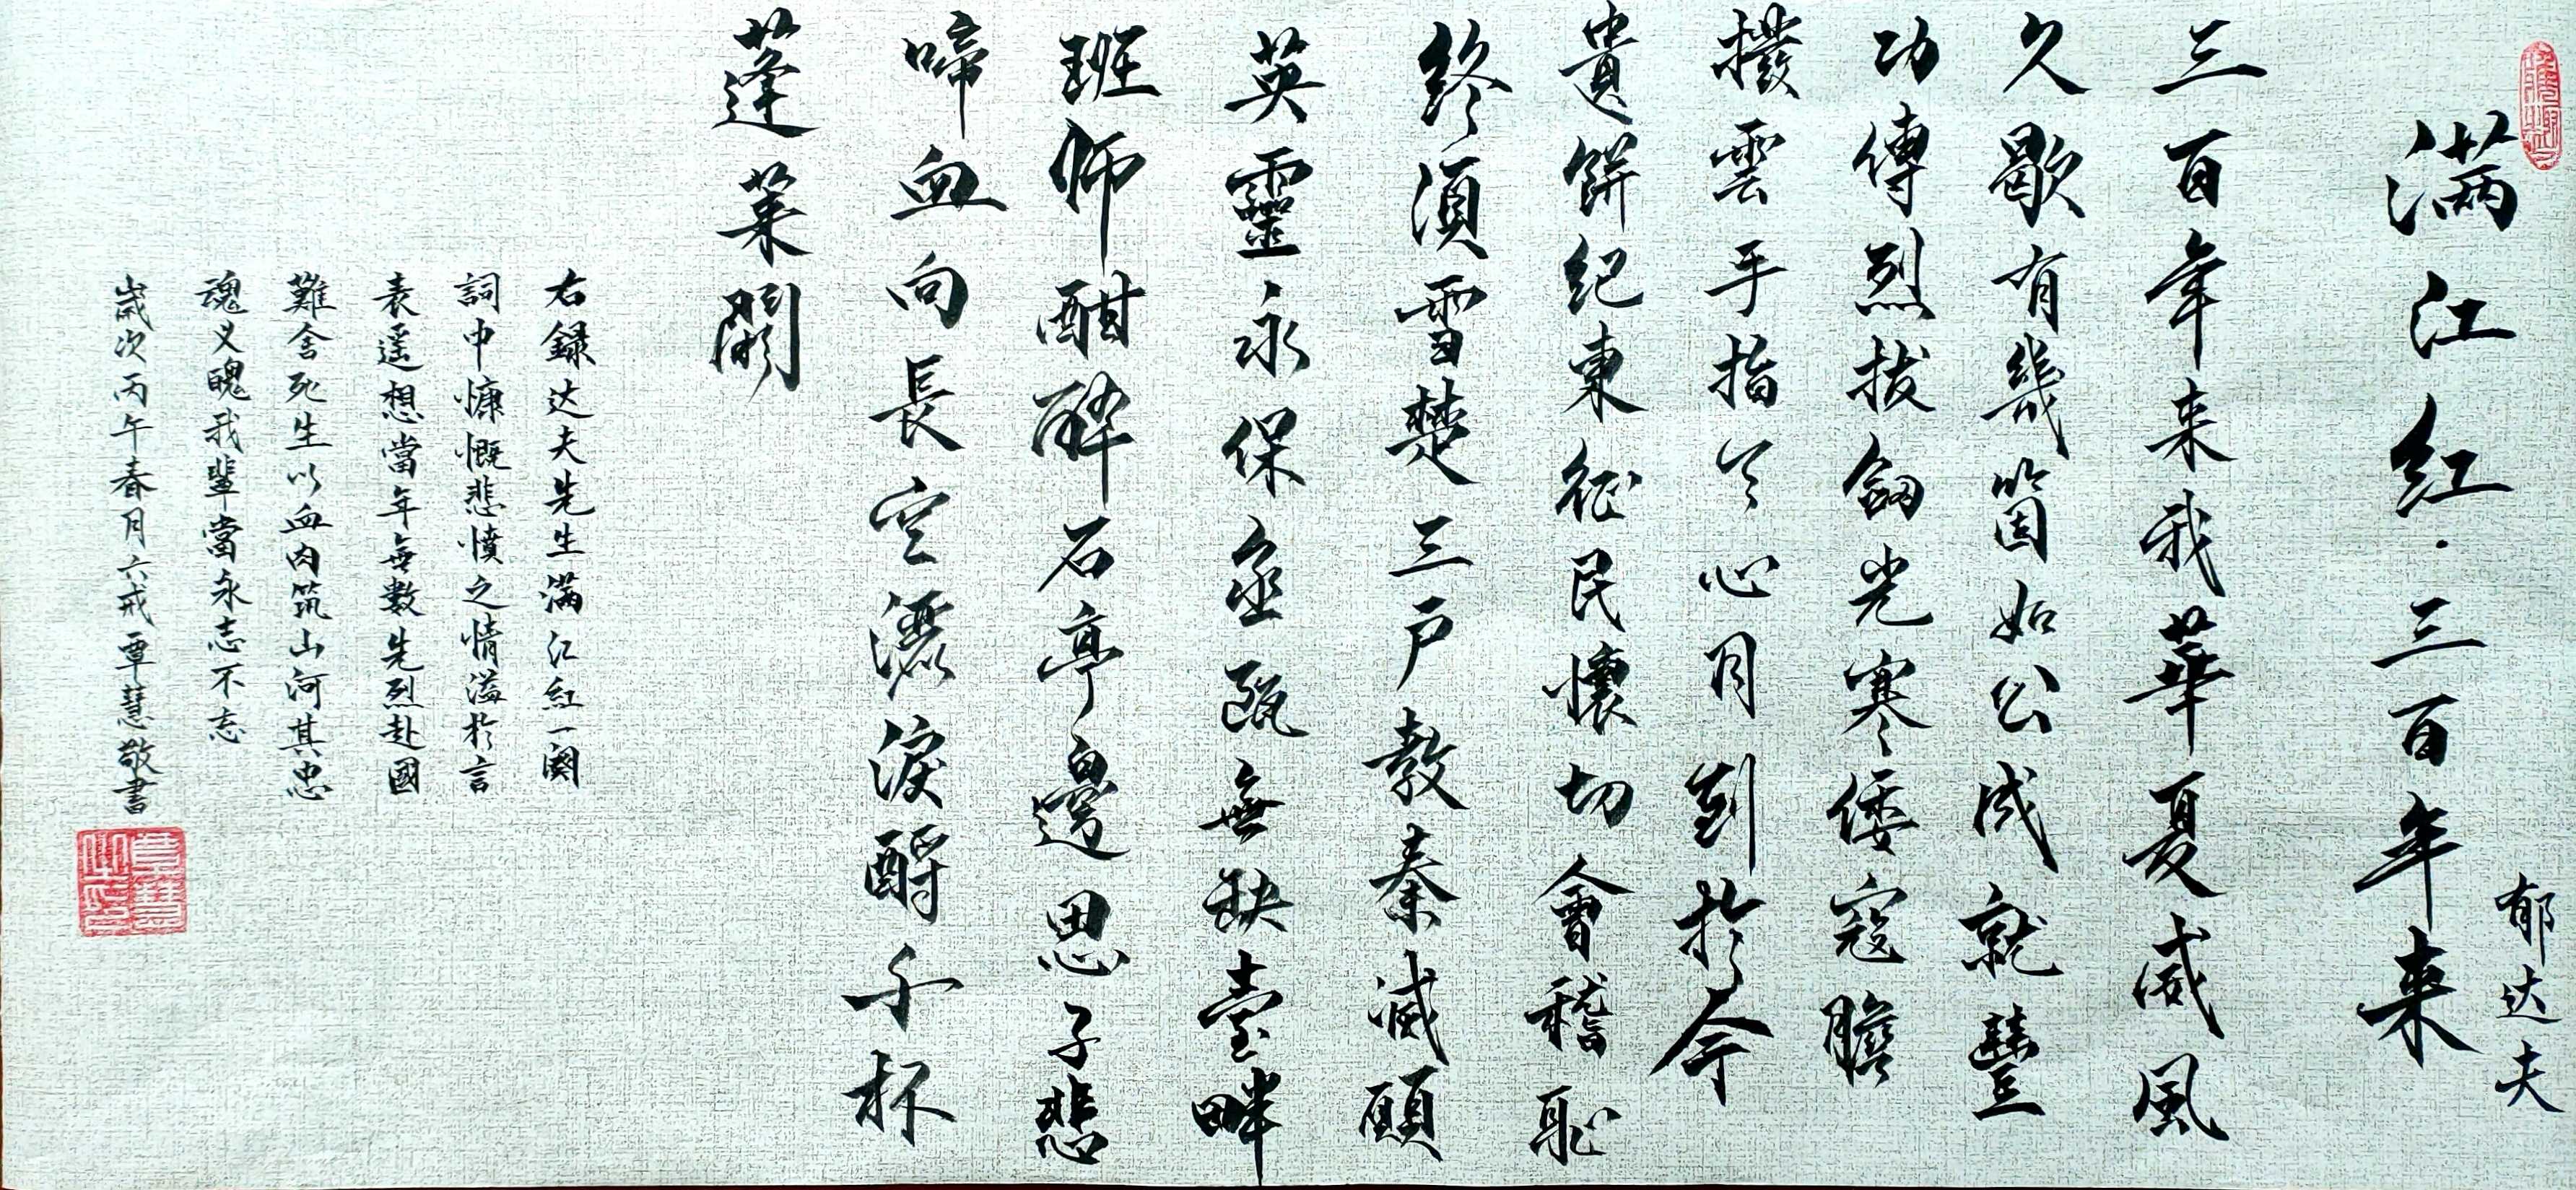 满江红·三百年来
郁达夫
三百年来我華夏威風
久歇有幾箇如公成就豐
功偉烈拔劍光寒倭寇膽
撥雲手指天心月到於今
遺餅紀東征民懷切會稽恥
終須雪楚三戶教秦滅願
英靈永保金甌無缺臺畔
班师酣醉石亭邊思子悲
啼血向長空灑淚酹千杯
蓬莱闕
右録达夫先生满江紅一闋
詞中慷慨悲憤之情溢於言
表遥想當年無數先烈赴國
難舍死生以血肉筑山河其忠
魂义魄我輩當永志不忘
歲次丙午春月六戒覃慧敬書